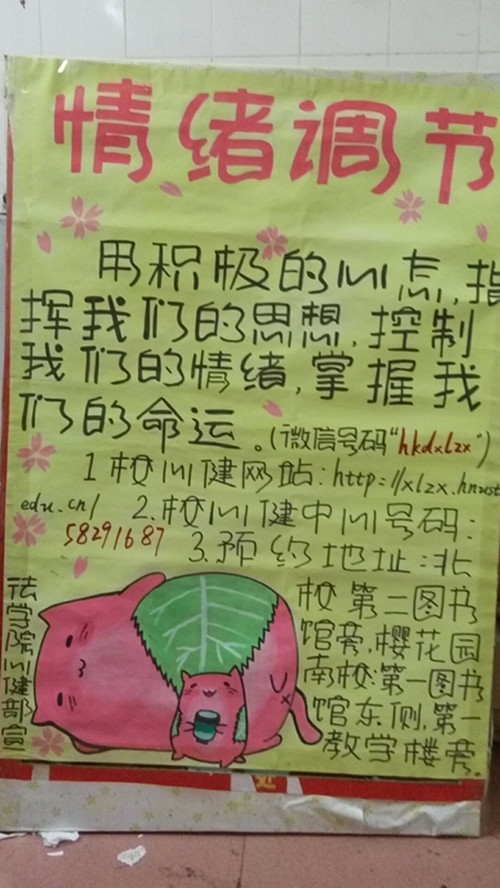 情绪调节
用积极的心态,指
挥我们的思想,控制
我们的情绪,掌握我
们的命运。(微信号码"hkdxlzx")
1校心健网站:http://xlzx.hnust
edu.cn/ 2.校心健中心号码:
58291687 3.预约地址:北
校第二图书
馆旁,樱花园
南校:第一图书
馆东侧,第一
教学楼旁。
法学院心健部宣